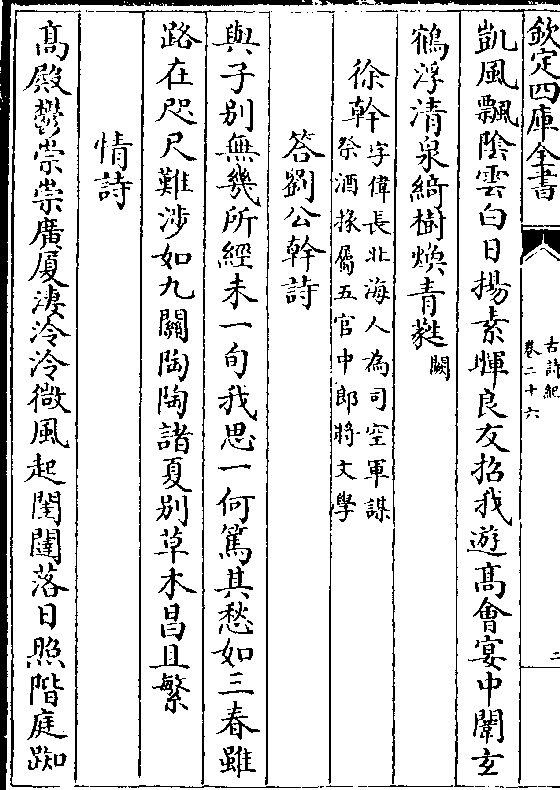 欽定四庫全書
古詩紀
卷二十六
二
凱風飄陰雲白日揚素暉良友招我遊髙會宴中闈玄
鶴浮清泉綺樹煥青蕤闕
徐幹字偉長北海人為司空軍謀
祭酒掾屬五官中郎將文學
答劉公幹詩
與子别無幾所經未一旬我思一何篤其愁如三春雖
路在咫尺難涉如九關陶陶諸夏别草木昌且繁
情詩
髙殿鬱崇崇廣厦淒泠泠微風起閨闥落日照階庭踟